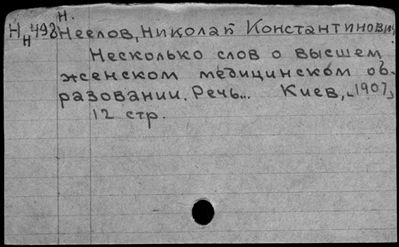 Н.
Н н 498 Неелов, Николай Константинович
Несколько слов о высшем
женском медицинском об-
разовании. Речь... Киев, [1907]
12 стр.